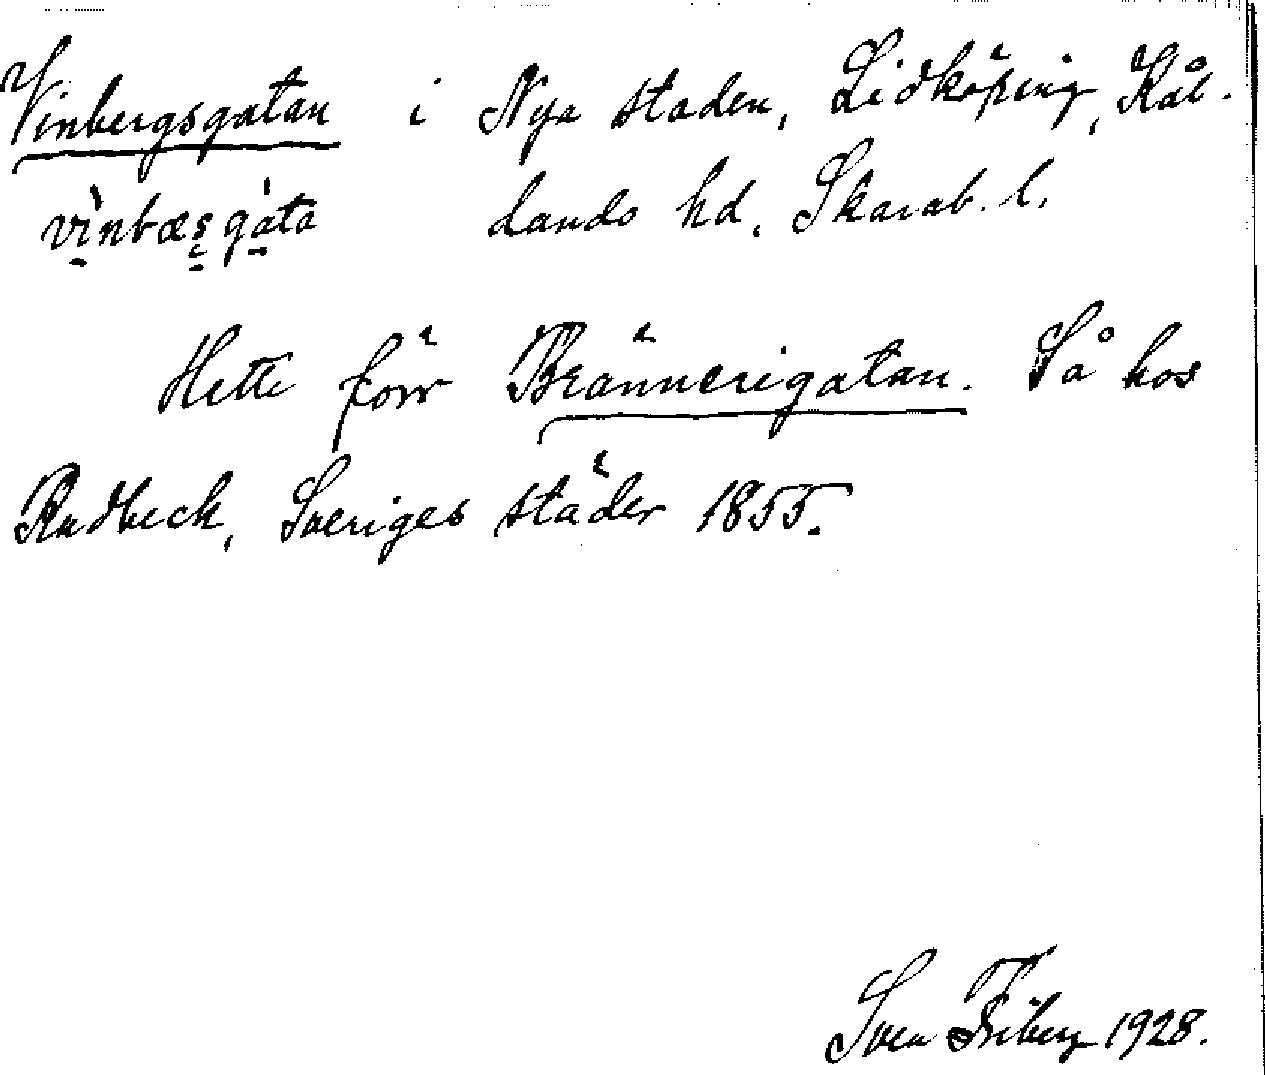 Vinbergsgatan i Nya staden, Lidköping, Kål-
vìnbæsgàta lands hd, Skarab. l.
Hette förr Brännerigatan. Så hos
Rudbeck, Sveriges städer 1855.
Sven Friberg 1928.